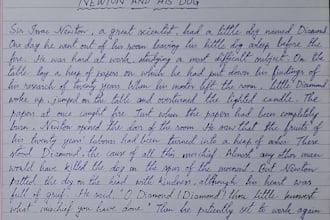 NEWTON AND HIS DOG
Sir Isaac Newton, a great scientist, had a little dog named Diamond
One day he went out of his room leaving his little dog asleep before the
fire. He was hard at work, studying a most difficult subject. On the
table lay a heap of papers on which he had put down his findings of
his research of twenty years. When his master left the room, little Diamond
woke up, jumped on the table and overturned the lighted candle. The
papers at once caught fire. Just when the papers had been completely
burn, Newton opened the door of the room. He saw that the fruits of
his twenty years labours had been turned into a heap of ashes. There
stood Diamond, the cause of all this mischief. Almost any other man
would have killed the dog on the spur of the moment. But Newton
patted the dog on the head with kindness, although his heart was
full of grief. He said, "O Diamond! Diamond! thou little knowest
what mischief you have done." Then he patiently set to work again